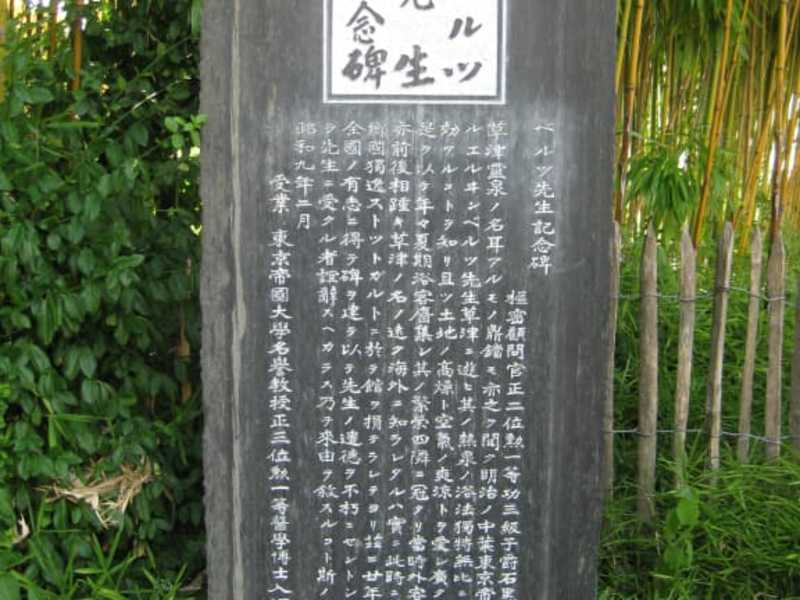 ルツ
生
念碑
ベルツ先生記念碑
樞密顧問官正二位勲一等功三級子爵石黒
草津靈泉ノ名耳アルモノ鼎鐺モ亦之ヲ聞ク明治ノ中葉東京帝
ルエルヰンベルツ先生草津ニ遊ヒ其ノ熱泉ノ浴法獨特無比ニ
効アルコトヲ知リ且ツ土地ノ高燥ト空氣ノ爽涼トヲ愛シ廣ク
是ヲ以テ年々夏期浴客麕集シ其ノ繁榮四隣ニ冠タリ當時外客
亦前後相踵キ草津ノ名ノ遠ク海外ニ知ラレタルハ實ニ此時ニ
郷國獨逸ストツトガルトニ於テ館ヲ捐テラレテヨリ茲ニ廿年
全國ノ有志ニ得テ碑ヲ建テ以テ先生ノ遺德ヲ不朽ニセントシ
ヲ先生ニ受クル者誼辭スヘカラス乃チ來由ヲ敘スルコト斯ノ
昭和九年二月
受業 東京帝國大學名譽教授正三位勲一等醫學博士入